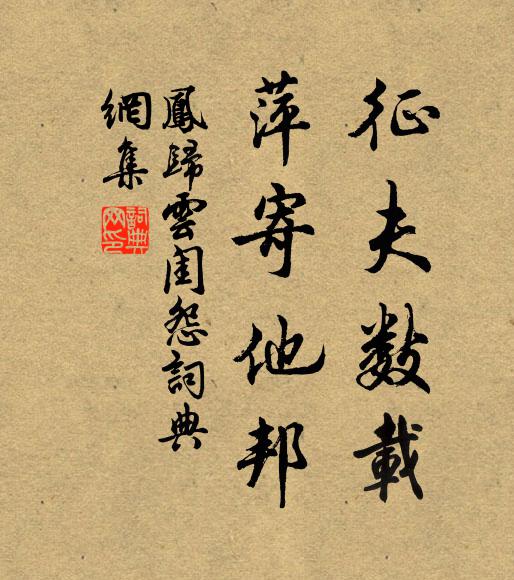 征夫數載
萍寄他邦
鳳歸雲閨怨詞典
網集
詞典
网印